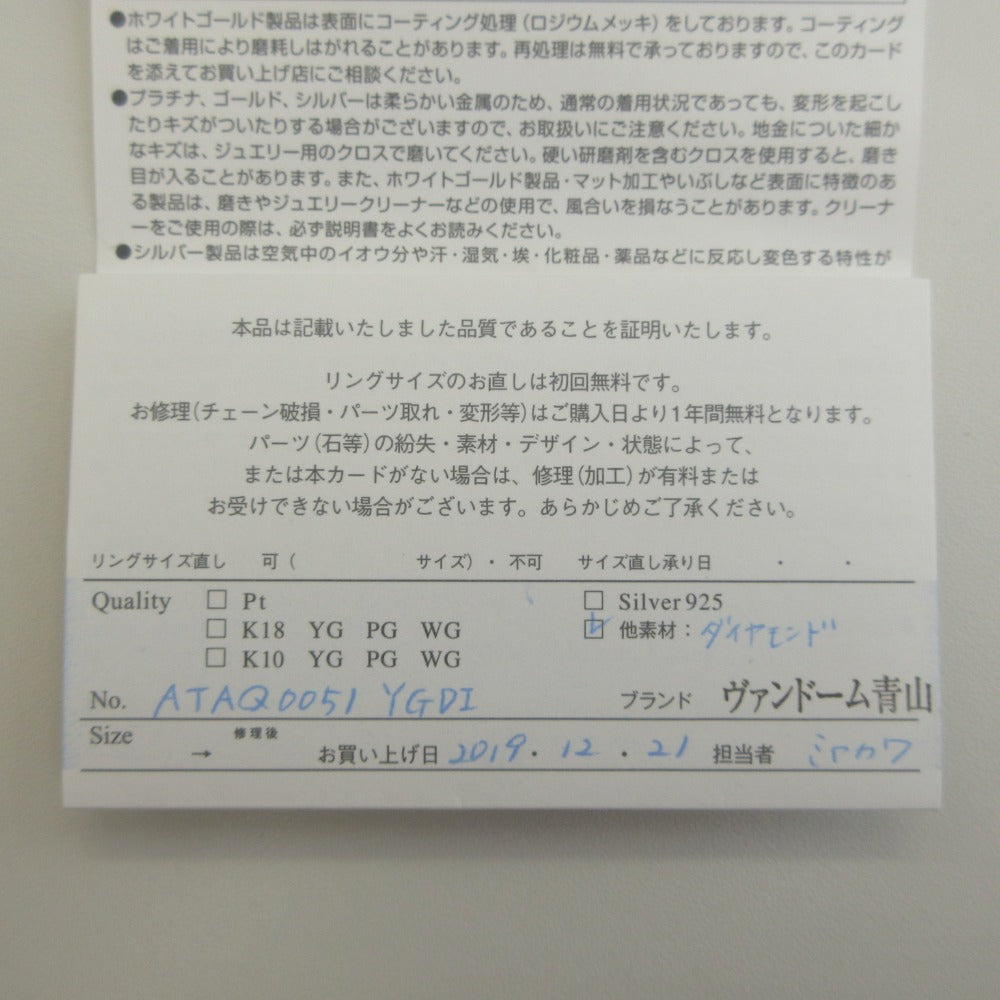 ●ホワイトゴールド製品は表面にコーティング処理（ロジウムメッキ）をしております。コーティング
はご着用により磨耗しはがれることがあります。再処理は無料で承っておりますので、このカード
を添えてお買い上げ店にご相談ください。
●プラチナ、ゴールド、シルバーは柔らかい金属のため、通常の着用状況であっても、変形を起こし
たりキズがついたりする場合がございますので、お取扱いにご注意ください。地金についた細か
なキズは、ジュエリー用のクロスで磨いてください。硬い研磨剤を含むクロスを使用すると、磨き
目が入ることがあります。また、ホワイトゴールド製品・マット加工やいぶしなど表面に特徴のあ
る製品は、磨きやジュエリークリーナーなどの使用で、風合いを損なうことがあります。クリーナ
ーをご使用の際は、必ず説明書をよくお読みください。
●シルバー製品は空気中のイオウ分や汗・湿気・埃・化粧品・薬品などに反応し変色する特性が
本品は記載いたしました品質であることを証明いたします。
リングサイズのお直しは初回無料です。
お修理（チェーン破損・パーツ取れ・変形等）はご購入日より1年間無料となります。
パーツ（石等）の紛失・素材・デザイン・状態によって、
または本カードがない場合は、修理（加工）が有料または
お受けできない場合がございます。あらかじめご了承ください。
リングサイズ直し 可（ サイズ）・不可 サイズ直し承り日 ・ ・
Quality □ Pt □ Silver925
□ K18 YG PG WG ☑ 他素材：ダイヤモンド
□ K10 YG PG WG
No. ATAQ0051 YGDI ブランド ヴァンドーム青山
Size → 修理後 お買い上げ日 2019・12・21 担当者 ミヤカワ